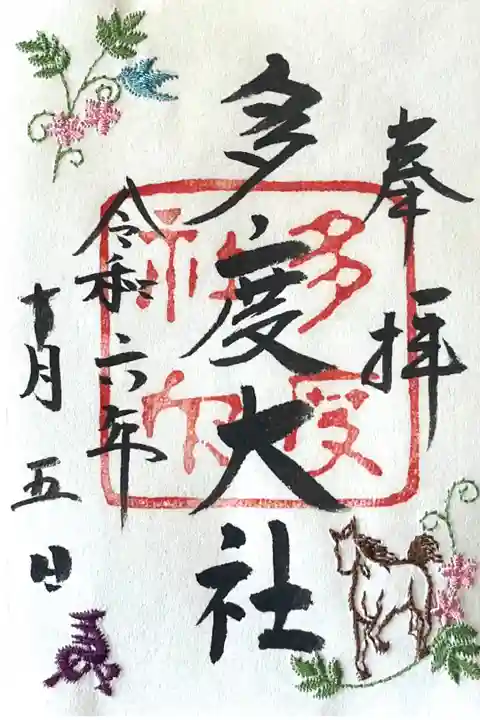 奉拝
多度大社
令和六年
十月五日
多度